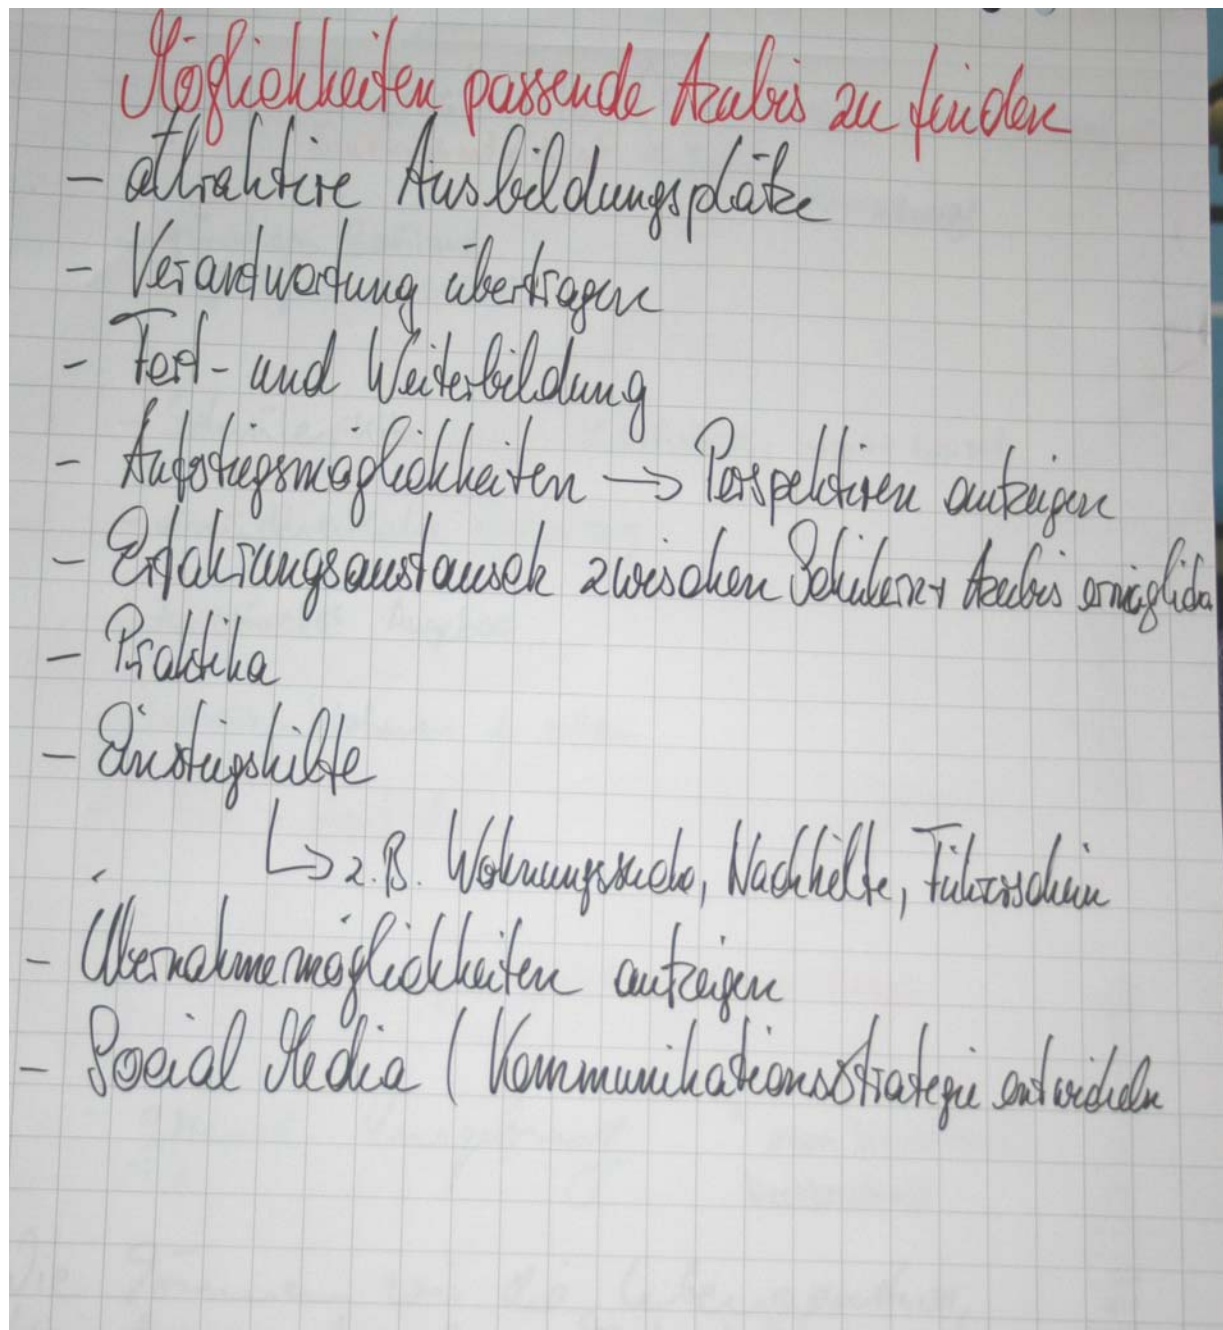 Möglichkeiten passende Azubis zu finden
- attraktive Ausbildungsplätze
- Verantwortung übertragen
- Fort- und Weiterbildung
- Aufstiegsmöglichkeiten → Perspektiven aufzeigen
- Erfahrungsaustausch zwischen Schülern + Azubis ermöglichen
- Praktika
- Einstiegshilfe
↳ z.B. Wohnungssuche, Nachhilfe, Führerschein
- Übernahmemöglichkeiten aufzeigen
- Social Media ( Kommunikationsstrategie entwickeln